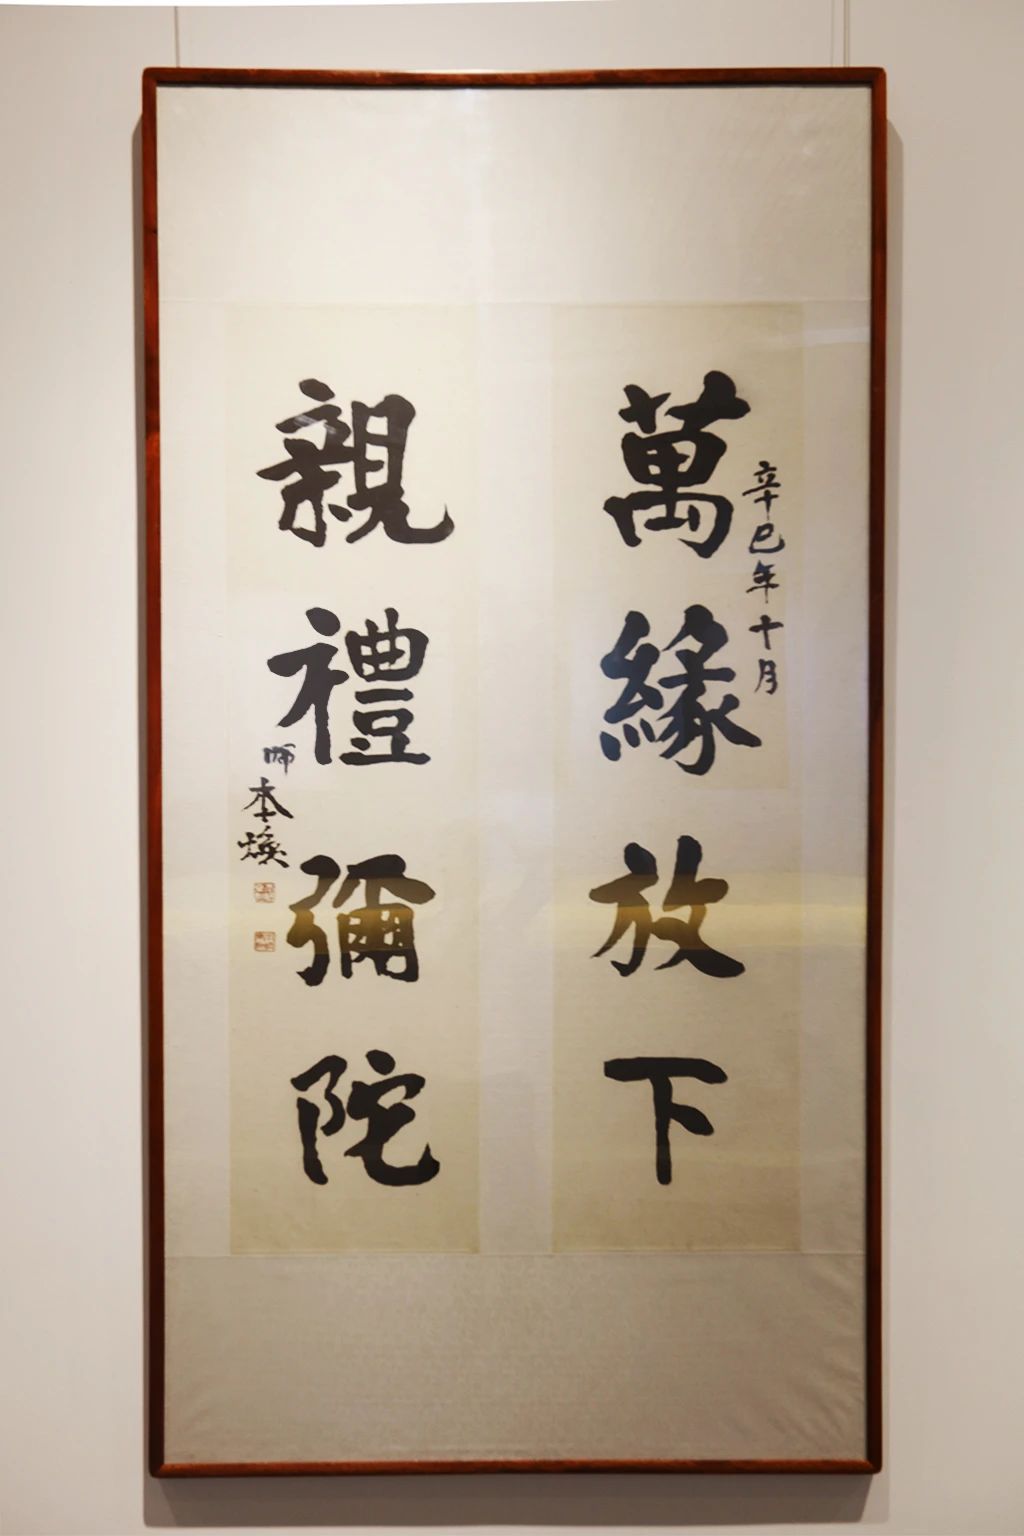 辛巳年十月
萬緣放下
親禮彌陀
師本煥